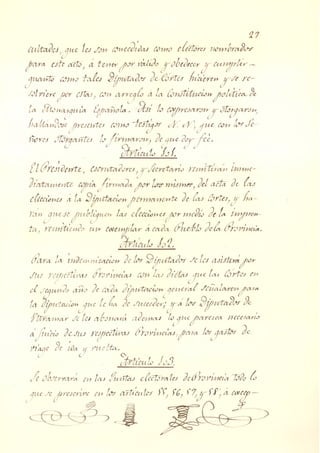 27
cultades, que les son concedidas como electores nombrados
para este acto, á tener por válido y obedecer y cumplir
quanto como tales Diputados de Cortes hicieren y se re-
solviere por éstas, con arreglo á la Constitucion política de
la Monarquía Española. Así lo expresaron y otorgaron,
hallándose presentes como testigos N. N, que con los Se-
ñores Otorgantes lo firmaron, de que doy fé.
Artículo 101.
El Presidente, escrutadores, y Secretario remitirán inme-
diatamente copia firmada por los mismos, del acta de las
elecciones á la Diputacion permanente de las Cortes, y ha-
ran que se publiquen las elecciones por medio de la impren-
ta, remitiendo un exemplar á cada Pueblo de la Provincia.
Artículo 102.
Para la indemnizacion de los Diputados se les asistirá por
sus respectivas Provincias con las dietas que las Cortes en
el segundo año de cada diputacion general señalaren para
la Diputacion que le ha de suceder; y á los Diputados de
Ultramar se les abonará ademas lo que parezca necesario
á juicio de sus respectivas Provincias, para los gastos de
viage de ida y vuelta.
Artículo 103.
Se observará en las Juntas electorales de Provincia todo lo
que se prescribe en los artículos 55, 56, 57, y 58, á excep-